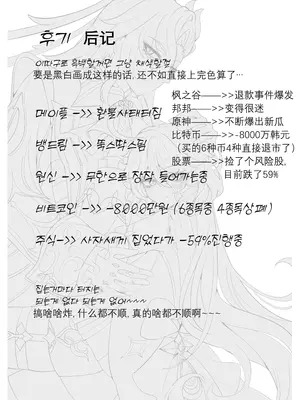 후기 后记
이따구로 흑백할꺼면 그냥 채색할걸
要是黑白画成这样的话, 还不如直接上完色算了…
枫之谷——>>退款事件爆发
메이플 —>> 환불사태터짐
邦邦——>>变得很迷
原神——>>不断爆出新瓜
뱅드림 —>> 똑스딱스럼
比特币——>>-8000万韩元
（买的6种币4种直接退市了）
원신 —>> 무한으로 장작 들어가는중
股票——>>捡了个风险股,
目前跌了59%
비트코인 —>> -8000만원 (6종목중 4종목상폐)
주식—>> 사자새끼 집었다가 -59%진행중
집는거마다 터지는
되는게 없다 되는게 없어~~~~
搞啥啥炸, 什么都不顺, 真的啥都不顺啊~~~